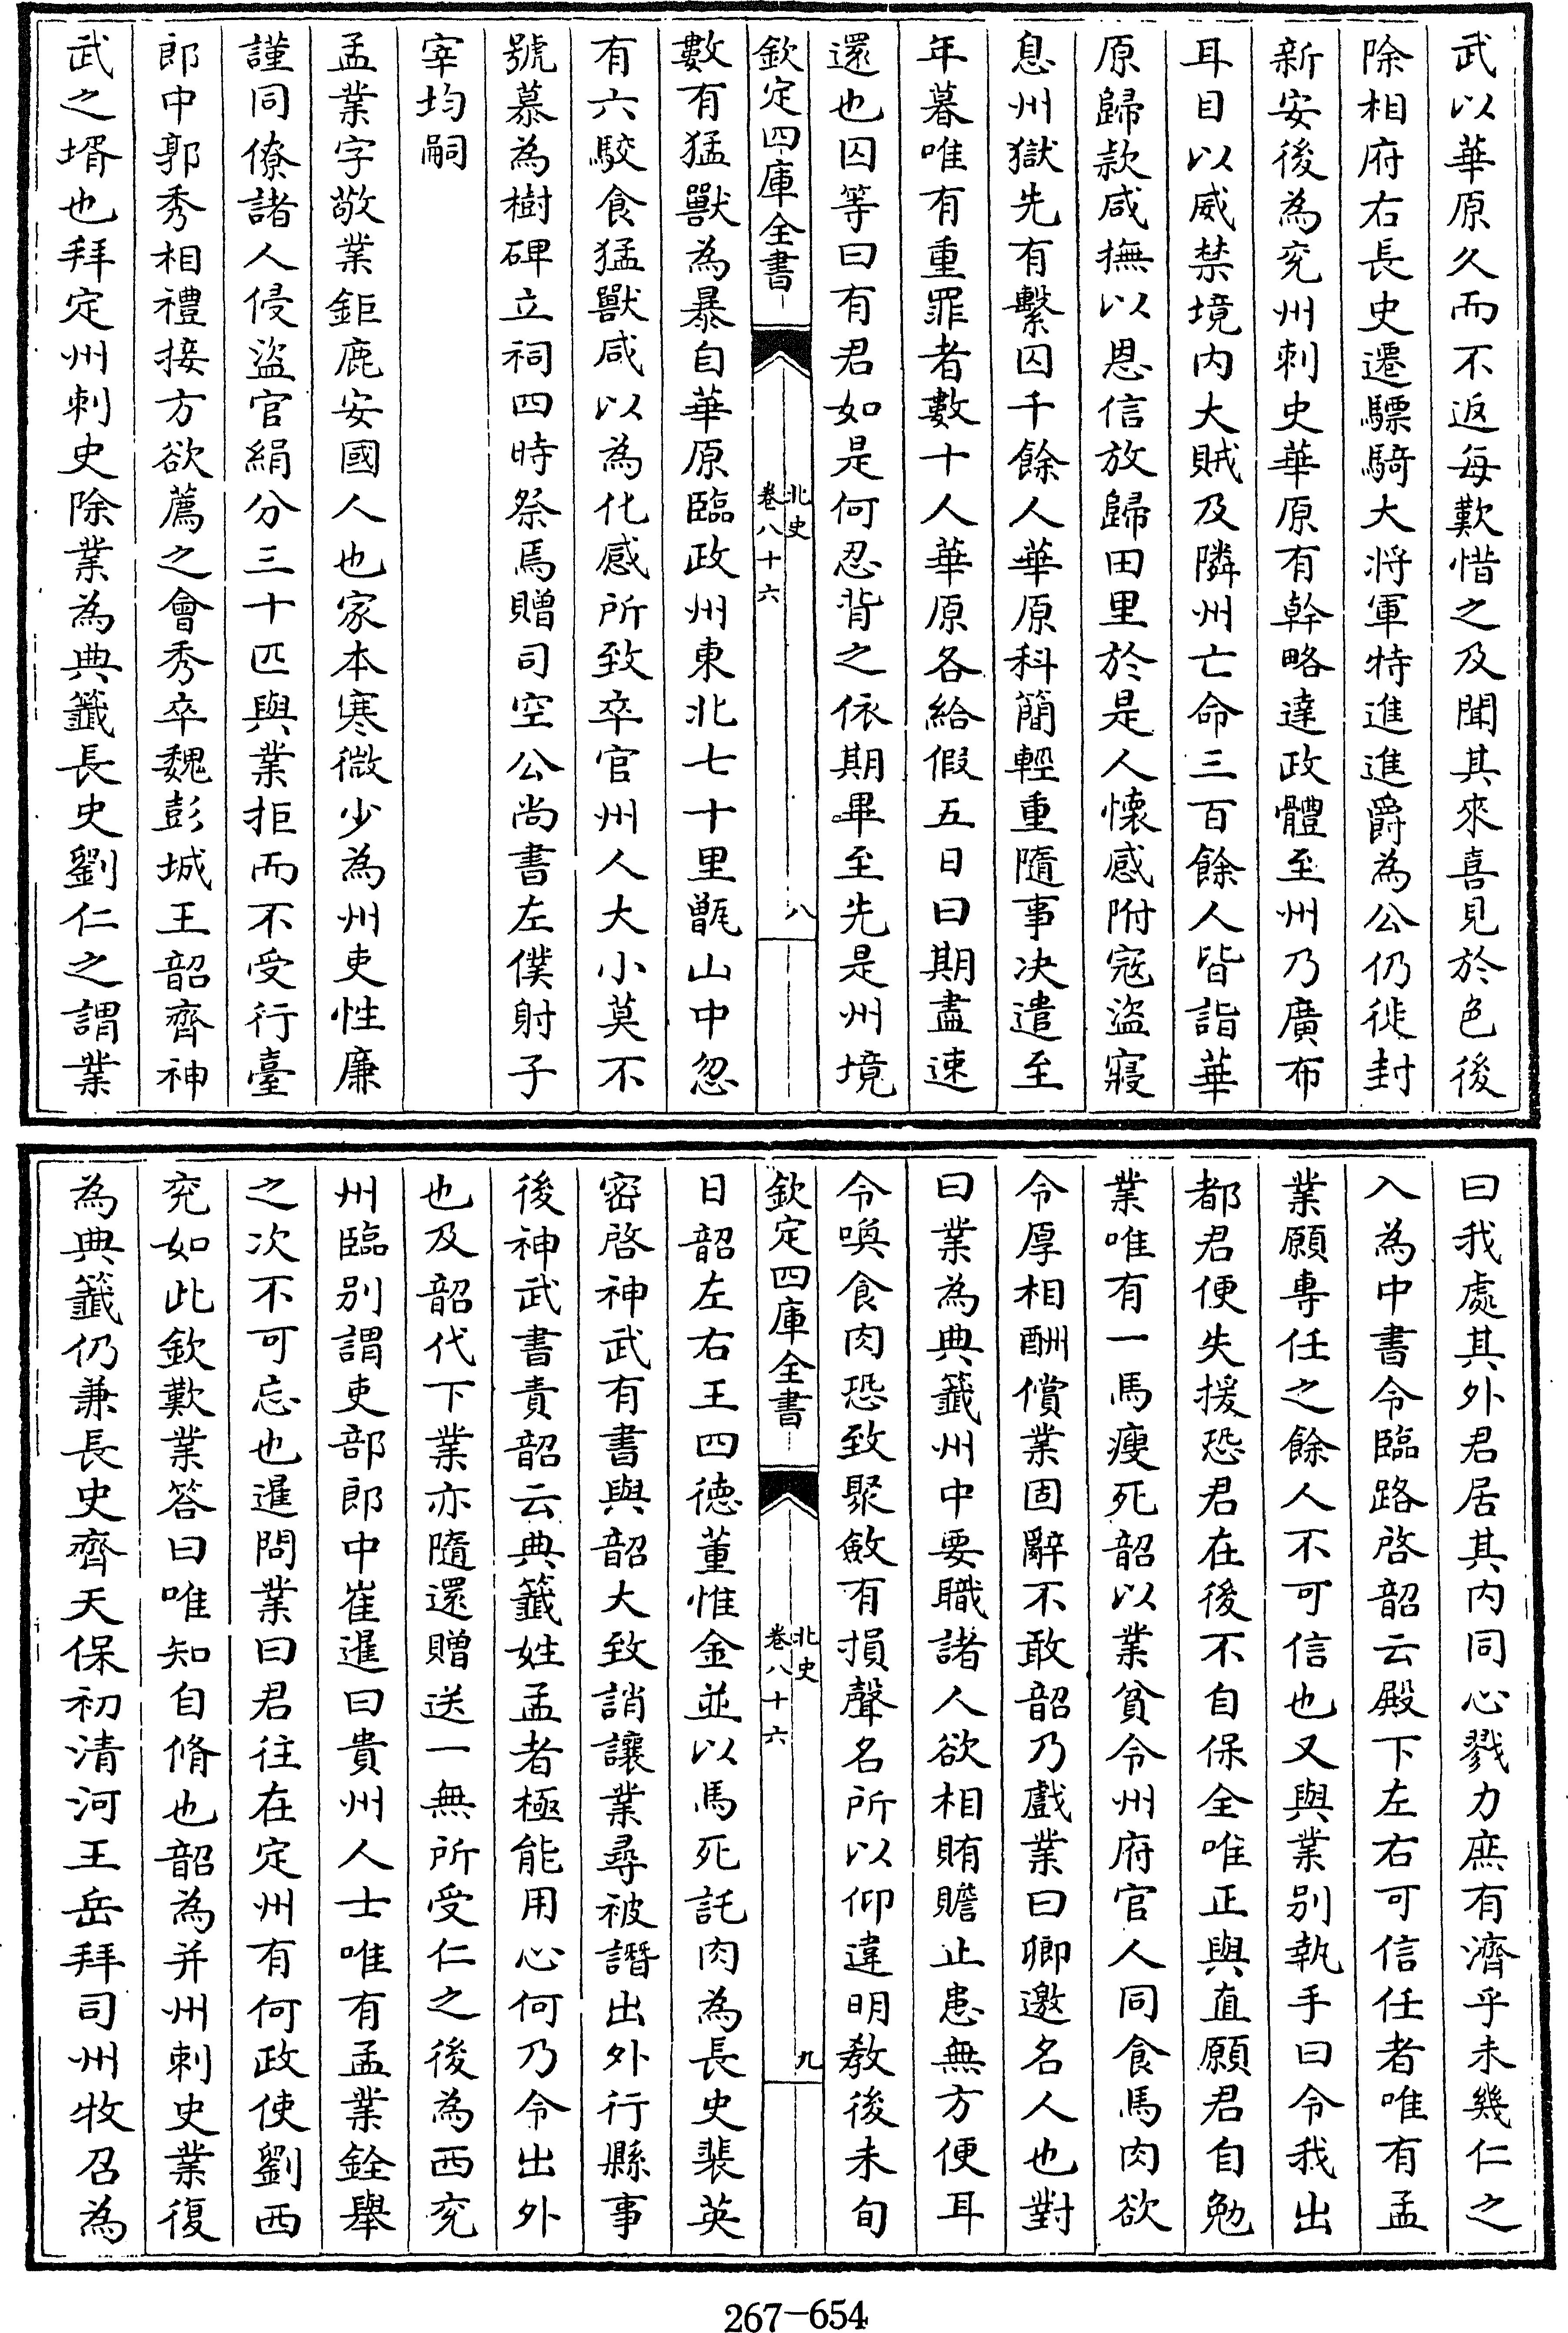 武以華原久而不返每歎惜之及聞其來喜見於色後
除相府右長史遷驃騎大將軍特進進爵為公仍徙封
新安後為兖州刺史華原有幹略達政體至州乃廣布
耳目以威禁境内大賊及隣州亡命三百餘人皆詣華
原歸款咸撫以恩信放歸田里於是人懷感附寇盜寢
息州獄先有繫囚千餘人華原科簡輕重隨事决遣至
年暮唯有重罪者數十人華原各給假五日曰期盡速
還也囚等曰有君如是何忍背之依期畢至先是州境
欽定四庫全書
北史
卷八十六
八
數有猛獸為暴自華原臨政州東北七十里甑山中忽
有六駮食猛獸咸以為化感所致卒官州人大小莫不
號慕為樹碑立祠四時祭焉贈司空公尚書左僕射子
宰均嗣
孟業字敬業鉅鹿安國人也家本寒微少為州吏性廉
謹同僚諸人侵盜官絹分三十匹與業拒而不受行臺
郎中郭秀相禮接方欲薦之會秀卒魏彭城王韶齊神
武之壻也拜定州刺史除業為典籤長史劉仁之謂業
曰我處其外君居其内同心戮力庶有濟乎未幾仁之
入為中書令臨路啓韶云殿下左右可信任者唯有孟
業願專任之餘人不可信也又與業别執手曰今我出
都君便失援恐君在後不自保全唯正與直願君自勉
業唯有一馬瘦死韶以業貧令州府官人同食馬肉欲
令厚相酬償業固辭不敢韶乃戲業曰卿邀名人也對
曰業為典籤州中要職諸人欲相賄贍止患無方便耳
今喚食肉恐致聚斂有損聲名所以仰違明教後未旬
欽定四庫全書
北史
卷八十六
九
日韶左右王四德董惟金並以馬死託肉為長史裴英
密啓神武有書與韶大致誚讓業尋被譖出外行縣事
後神武書責韶云典籤姓孟者極能用心何乃令出外
也及韶代下業亦隨還贈送一無所受仁之後為西兖
州臨别謂吏部郎中崔暹曰貴州人士唯有孟業銓舉
之次不可忘也暹問業曰君往在定州有何政使劉西
兖如此欽歎業答曰唯知自脩也韶為并州刺史業復
為典籤仍兼長史齊天保初清河王岳拜司州牧召為
267-654